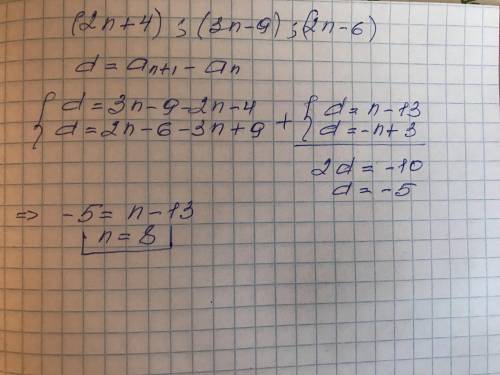 (2n+4) ; (3n-9) ; (2n-6)
d = aₙ₊₁ - aₙ
{ d = 3n-9-2n-4 + { d = n-13
d = 2n-6-3n+9 d = -n+3
2d = -10
d = -5
=> -5 = n-13
n = 8